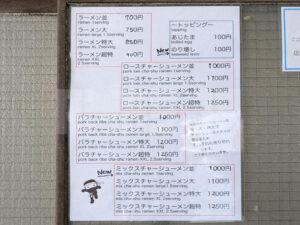 ラーメン並 700円
ramen 1serving
ラーメン大 750円
ramen large 1.5serving
ラーメン特大 850円
ramen XL 2serving
ラーメン超特
ramen XXL
2.5serving
～トッピング～
topping
あじたま 100円
boiled egg
New のり増し 100円
seaweed laver
ロースチャーシューメン並 1000円
pork loin cha-shu ramen 1serving
ロースチャーシューメン大 1100円
pork loin cha-shu ramen large 1.5serving
ロースチャーシューメン特大 1200円
pork loin cha-shu ramen XL 2serving
ロースチャーシューメン超特 1250円
pork loin cha-shu ramen XXL 2.5serving
バラチャーシューメン並 1000円
pork back ribs cha-shu ramen 1serving
バラチャーシューメン大 1100円
pork back ribs cha-shu ramen large 1.5serving
バラチャーシューメン特大 1200円
pork back ribs cha-shu ramen XL 2serving
バラチャーシューメン超特 1250円
pork back ribs cha-shu ramen XXL 2.5serving
New
ミックスチャーシューメン並 1000円
mix cha-shu ramen 1serving
ミックスチャーシューメン大 1100円
mix cha-shu ramen large 1.5serving
ミックスチャーシューメン特大 1200円
mix cha-shu ramen XL 2serving
ミックスチャーシューメン超特 1250円
mix cha-shu ramen XXL 2.5serving
店